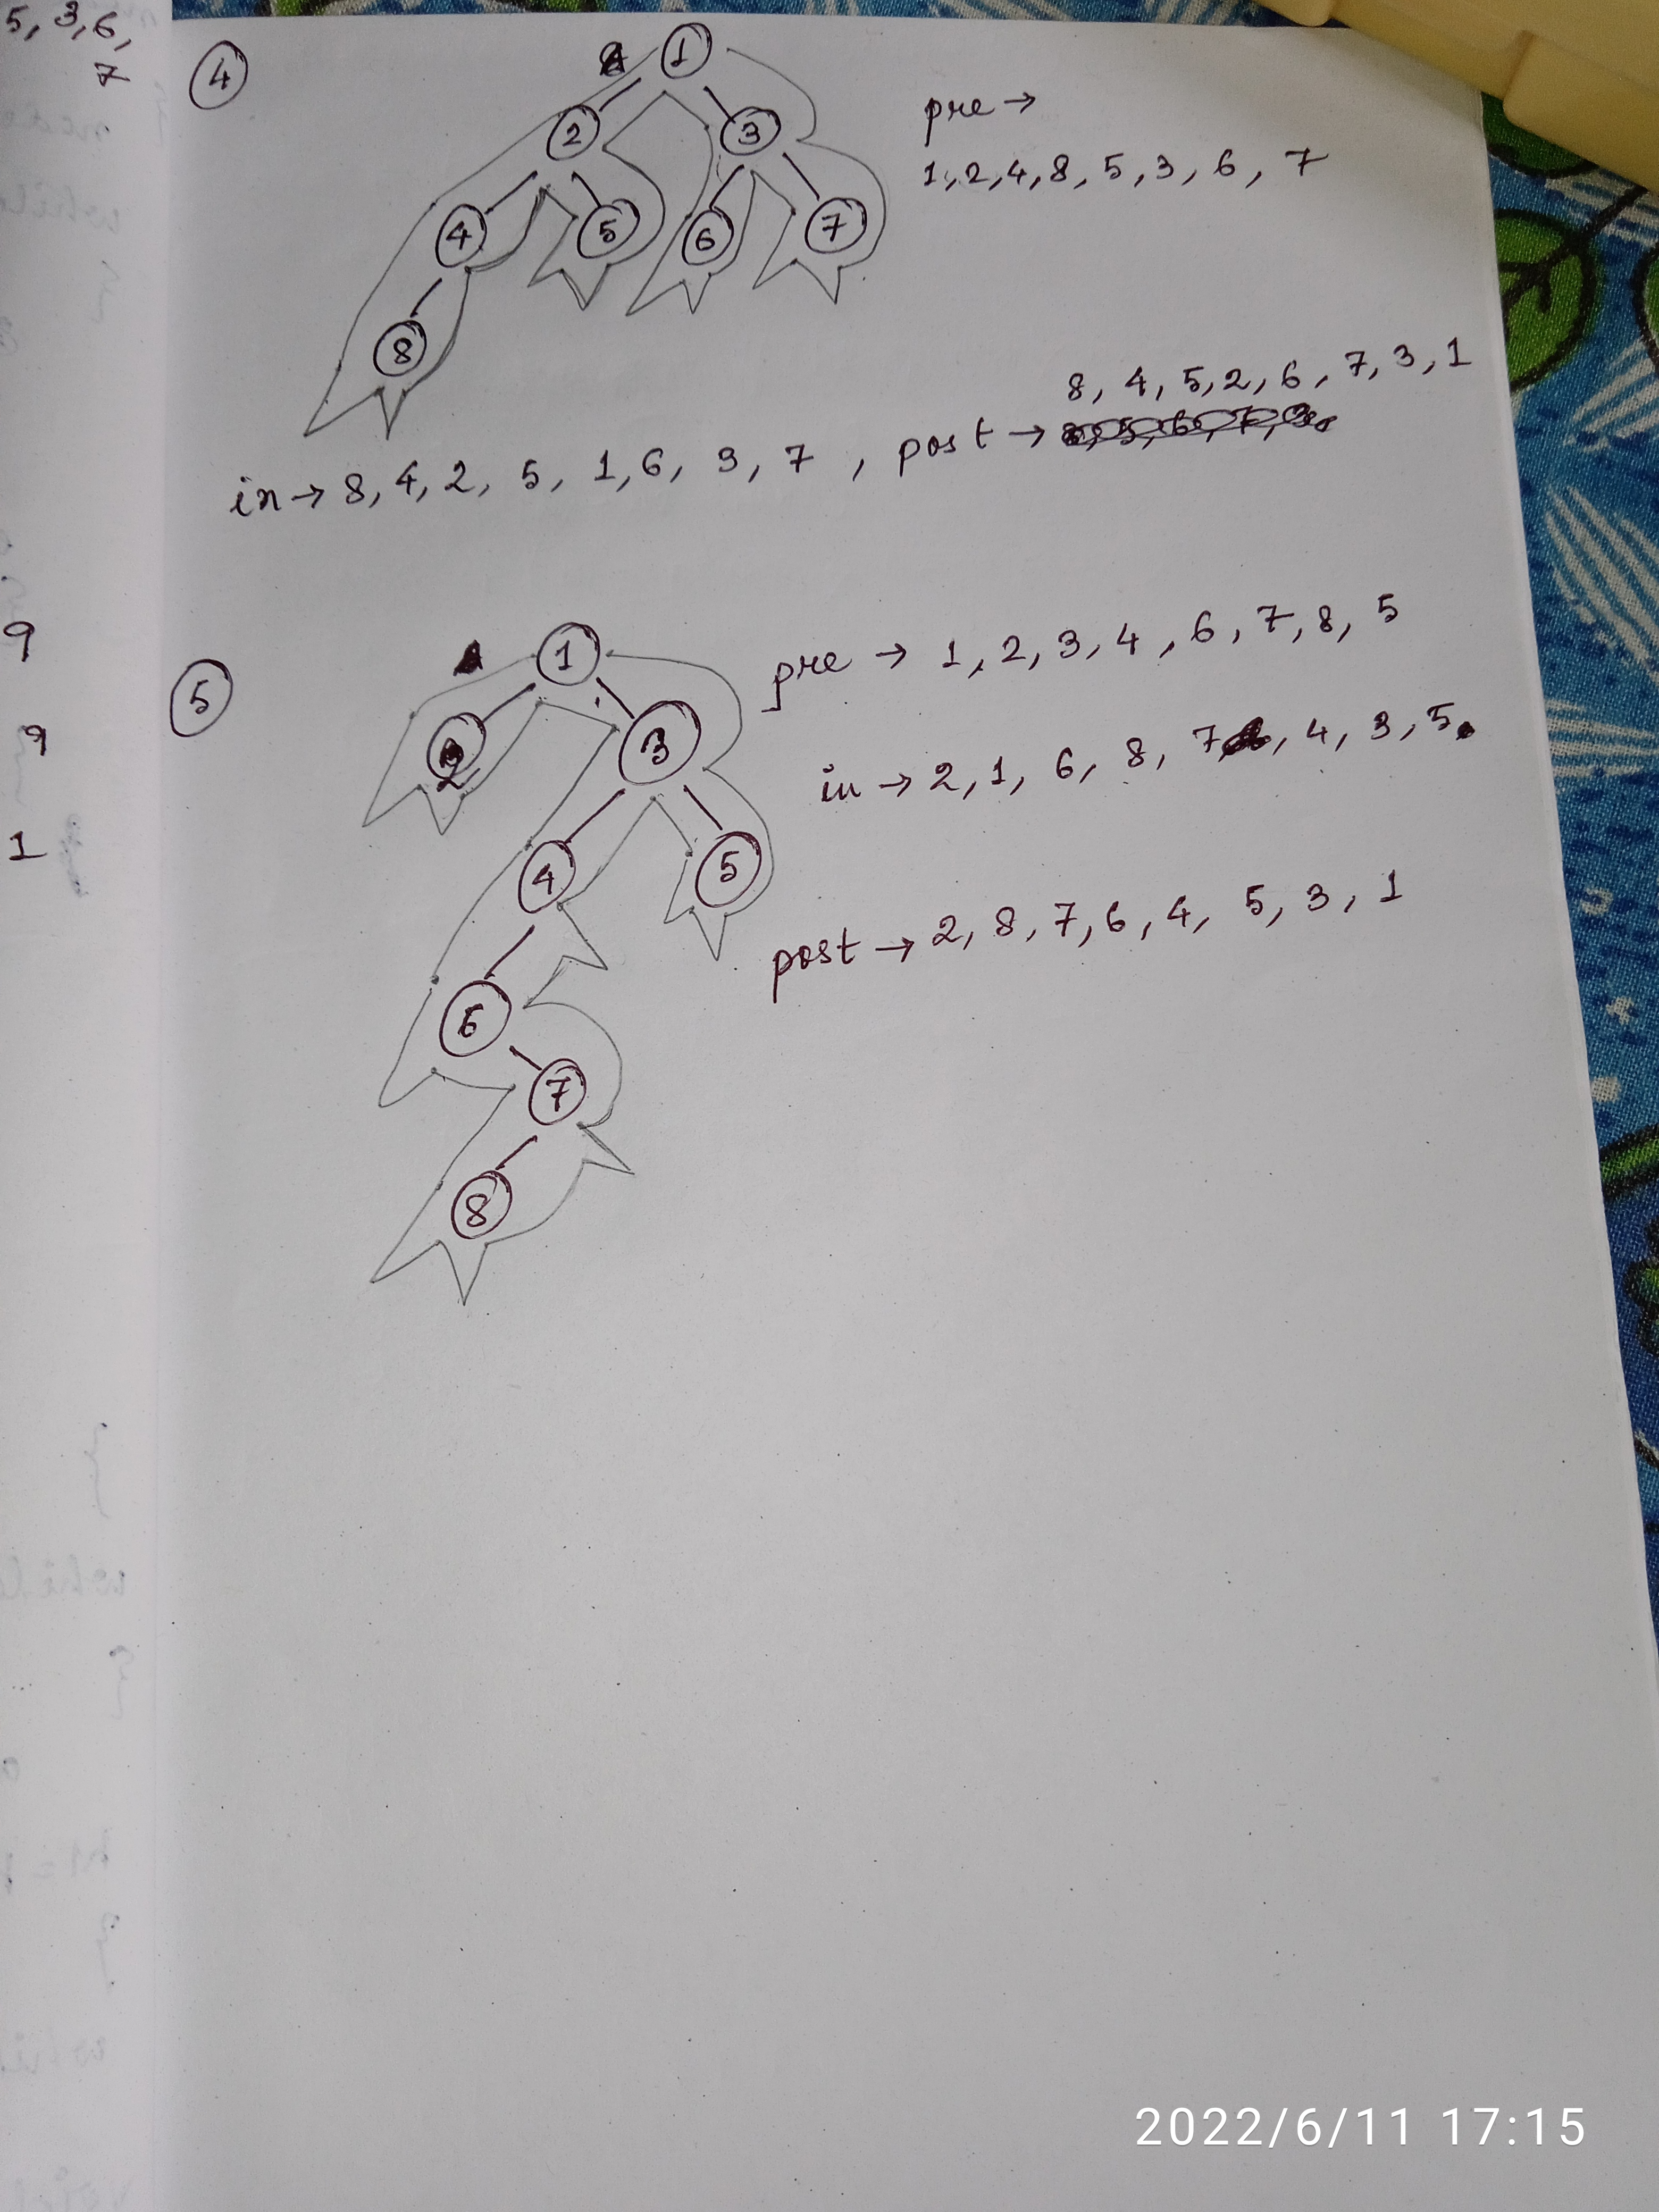 5, 3, 6,
7
9
9
1
4
1
2
3
4
5
6
7
8
pre →
1, 2, 4, 8, 5, 3, 6, 7
in → 8, 4, 2, 5, 1, 6, 3, 7 , post →
8, 4, 5, 2, 6, 7, 3, 1
5
1
2
3
4
5
6
7
8
pre → 1, 2, 3, 4, 6, 7, 8, 5
in → 2, 1, 6, 8, 7, 4, 3, 5.
post → 2, 8, 7, 6, 4, 5, 3, 1
2022/6/11 17:15